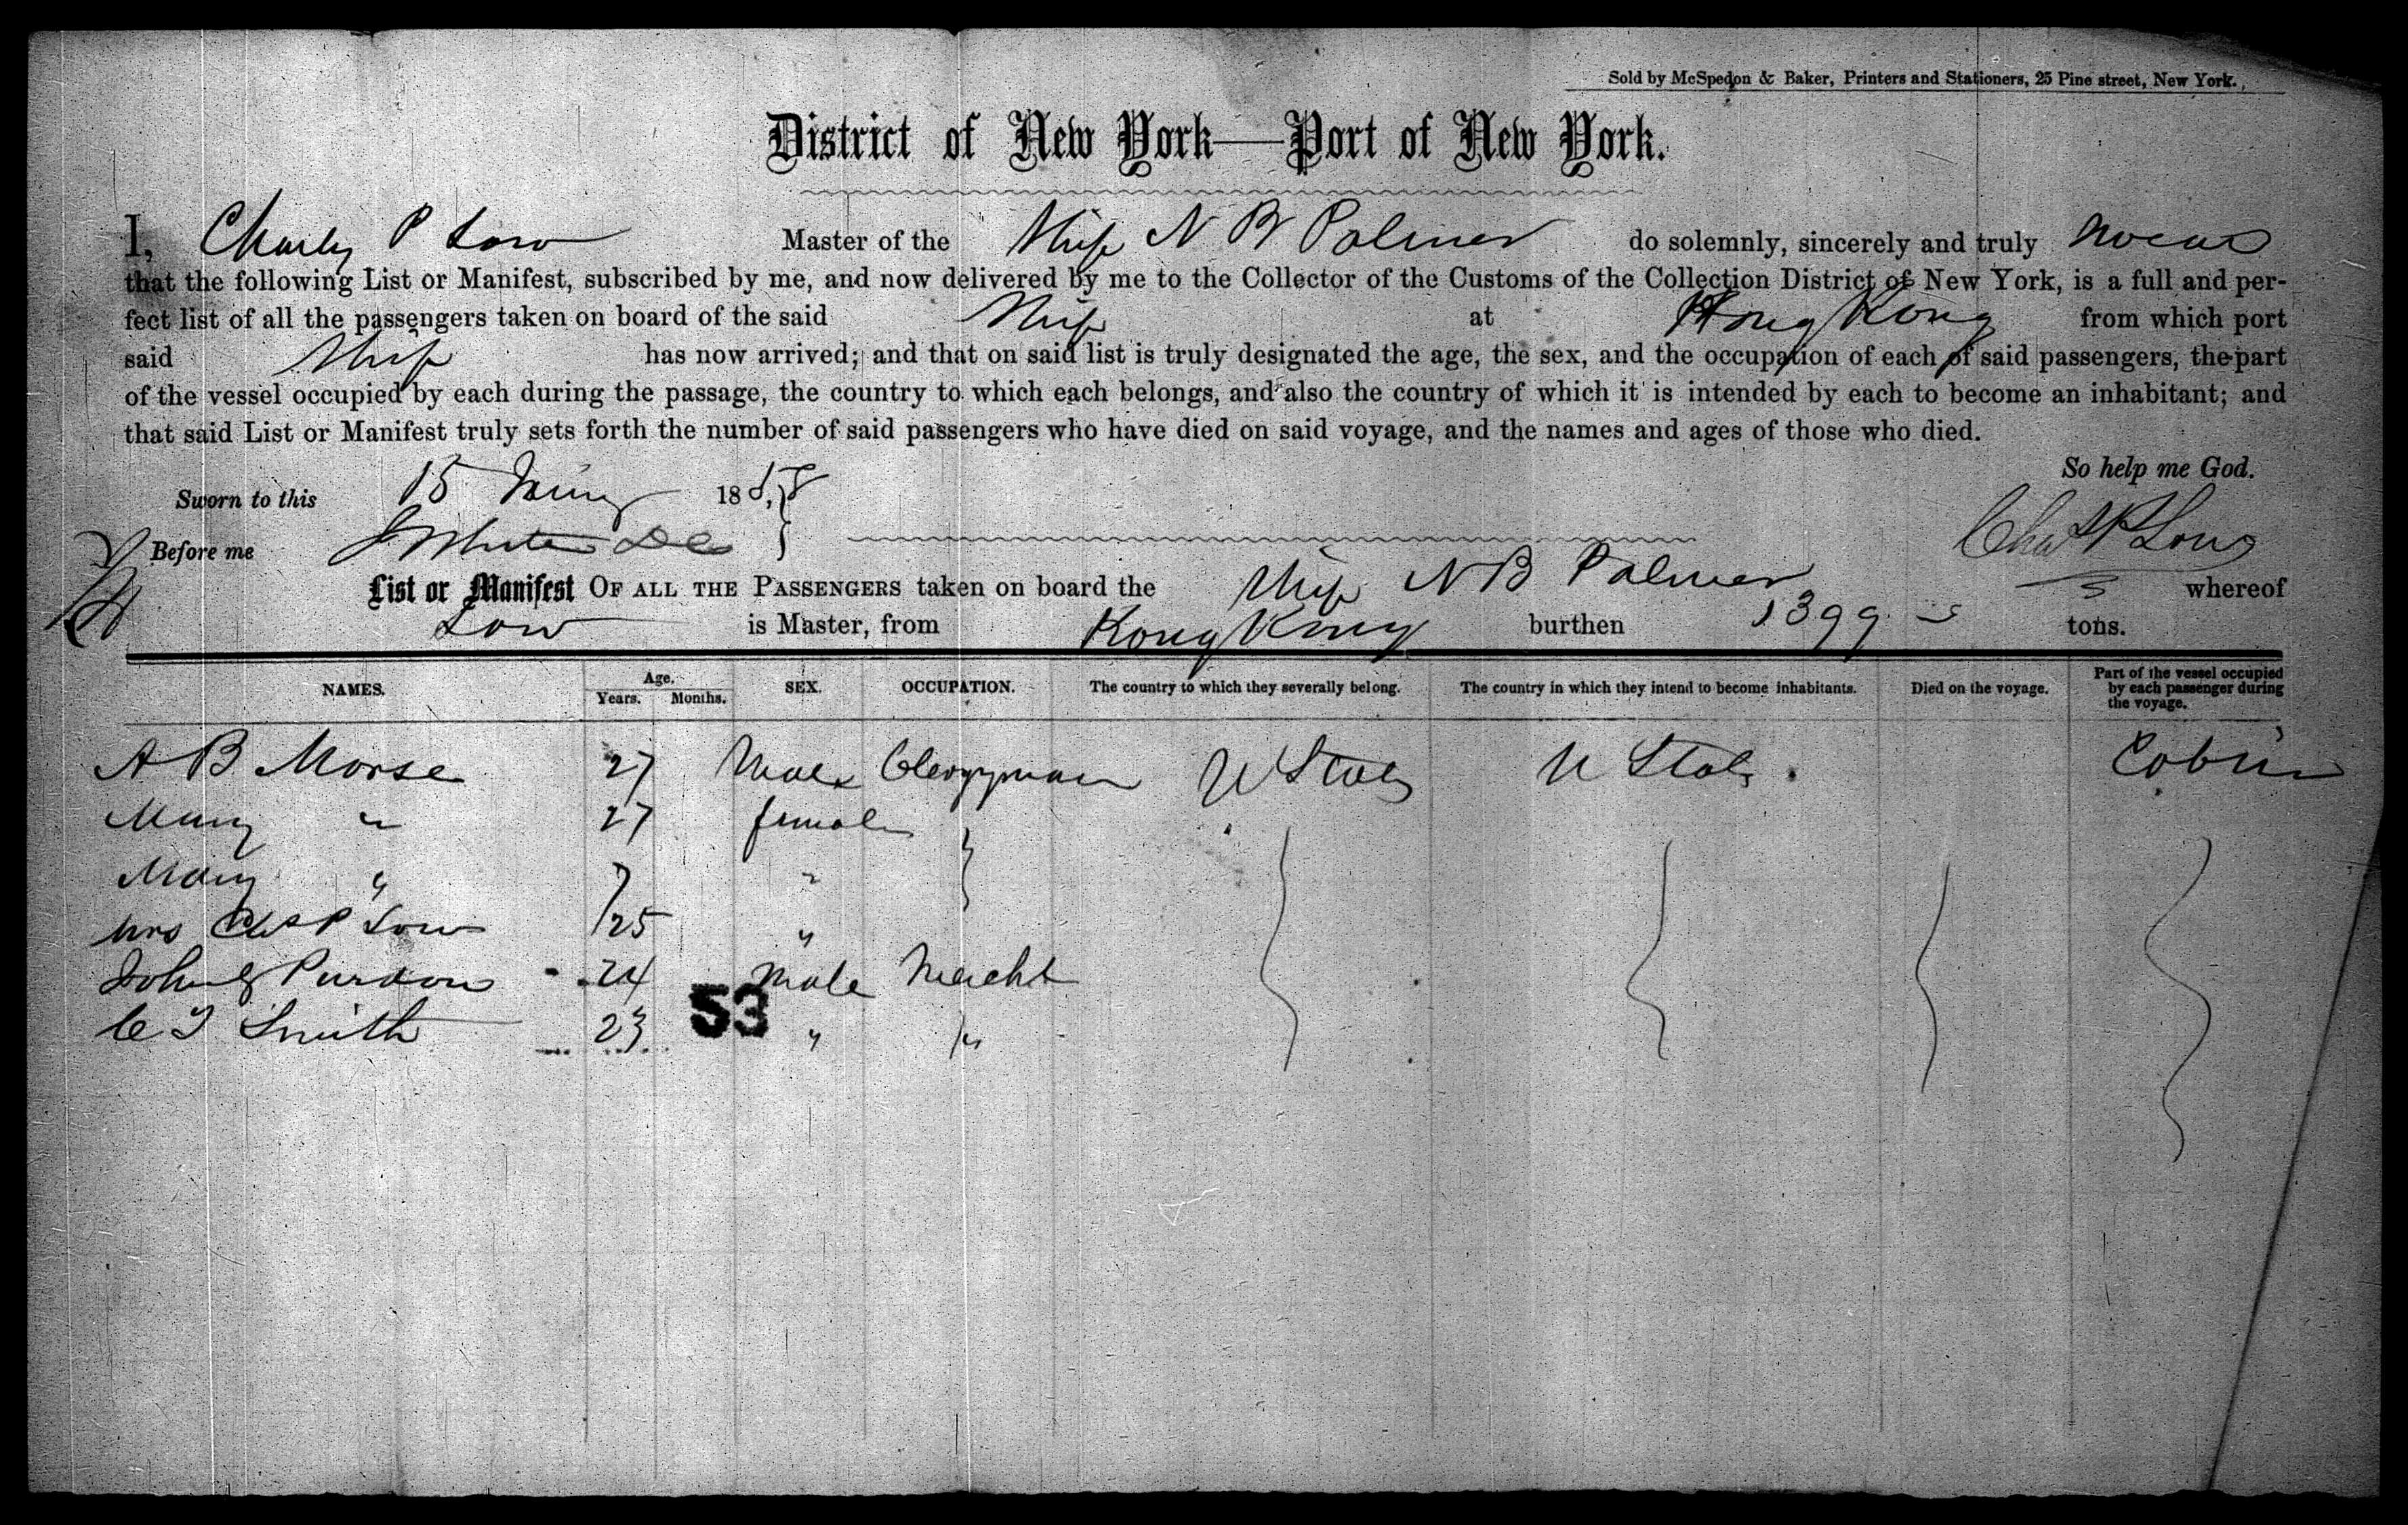 Sold by McSpedon & Baker, Printers and Stationers, 25 Pine street, New York.
District of New York—Port of New York.
I, Charles P Low Master of the Ship N B Palmer do solemnly, sincerely and truly swear
that the following List or Manifest, subscribed by me, and now delivered by me to the Collector of the Customs of the Collection District of New York, is a full and per-
fect list of all the passengers taken on board of the said Ship at Hong Kong from which port
said Ship has now arrived; and that on said list is truly designated the age, the sex, and the occupation of each of said passengers, the part
of the vessel occupied by each during the passage, the country to which each belongs, and also the country of which it is intended by each to become an inhabitant; and
that said List or Manifest truly sets forth the number of said passengers who have died on said voyage, and the names and ages of those who died.
So help me God.
Sworn to this 15 1858
Before me Chas P Low
List or Manifest OF ALL THE PASSENGERS taken on board the Ship N B Palmer whereof
Low is Master, from Hong Kong burthen 1399 tons.
NAMES. Age. Years. Months. SEX. OCCUPATION. The country to which they severally belong. The country in which they intend to become inhabitants. Died on the voyage. Part of the vessel occupied by each passenger during the voyage.
A B Morse 27 Male Clergyman U States U States Cabin
Mary " 27 female
Mary " 7 "
Mrs Chs P Low 25 "
John Purdon 24 Male Mercht
C T Smith 23 " "
53